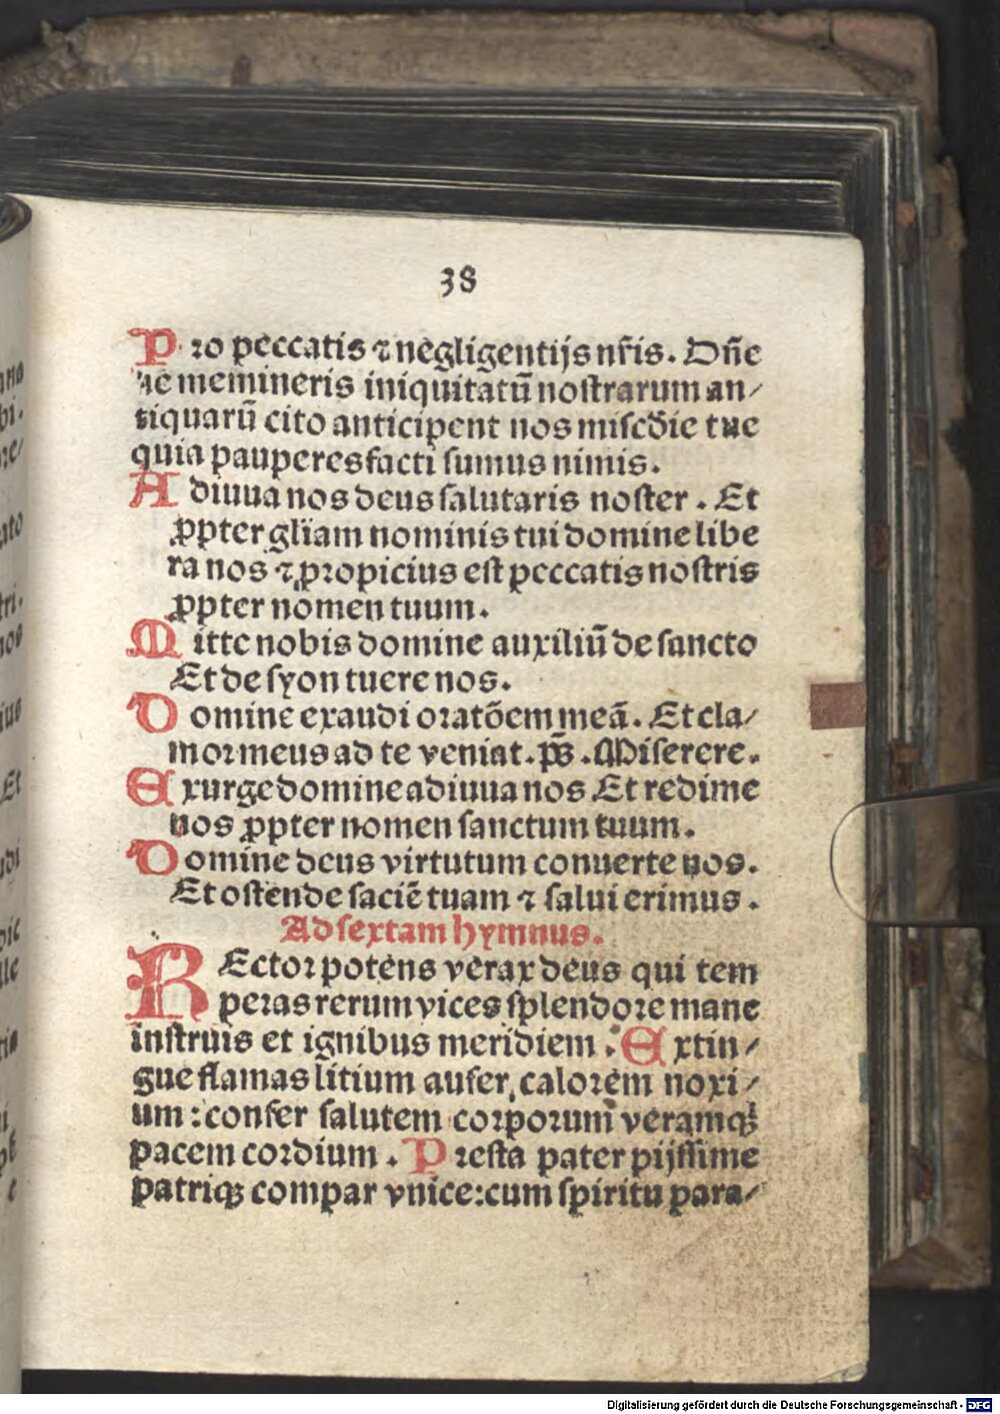 38
Pro peccatis ⁊ negligentijs nr̃is. Dñe
ne memineris iniquitatũ nostrarum an⸗
tiquarũ cito anticipent nos misc̃die tue
quia pauperes facti sumus nimis.
Adiuua nos deus salutaris noster. Et
ꝓpter gl̃iam nominis tui domine libe
ra nos ⁊ propicius est peccatis nostris
ꝓpter nomen tuum.
Mitte nobis domine auxiliũ de sancto
Et de syon tuere nos.
Domine exaudi oratõem meã. Et cla⸗
mor meus ad te veniat. p̃s. Miserere.
Exurge domine adiuua nos Et redime
nos ꝓpter nomen sanctum tuum.
Domine deus virtutum conuerte nos.
Et ostende faciẽ tuam ⁊ salui erimus.
Ad sextam hymnus.
REctor potens verax deus qui tem
peras rerum vices splendore mane
instruis et ignibus meridiem. Extin⸗
gue flamas litium aufer calorem noxi⸗
um: confer salutem corporum veramqꝫ
pacem cordium. Presta pater pijssime
patriqꝫ compar vnice: cum spiritu para⸗
Digitalisierung gefördert durch die Deutsche Forschungsgemeinschaft - DFG